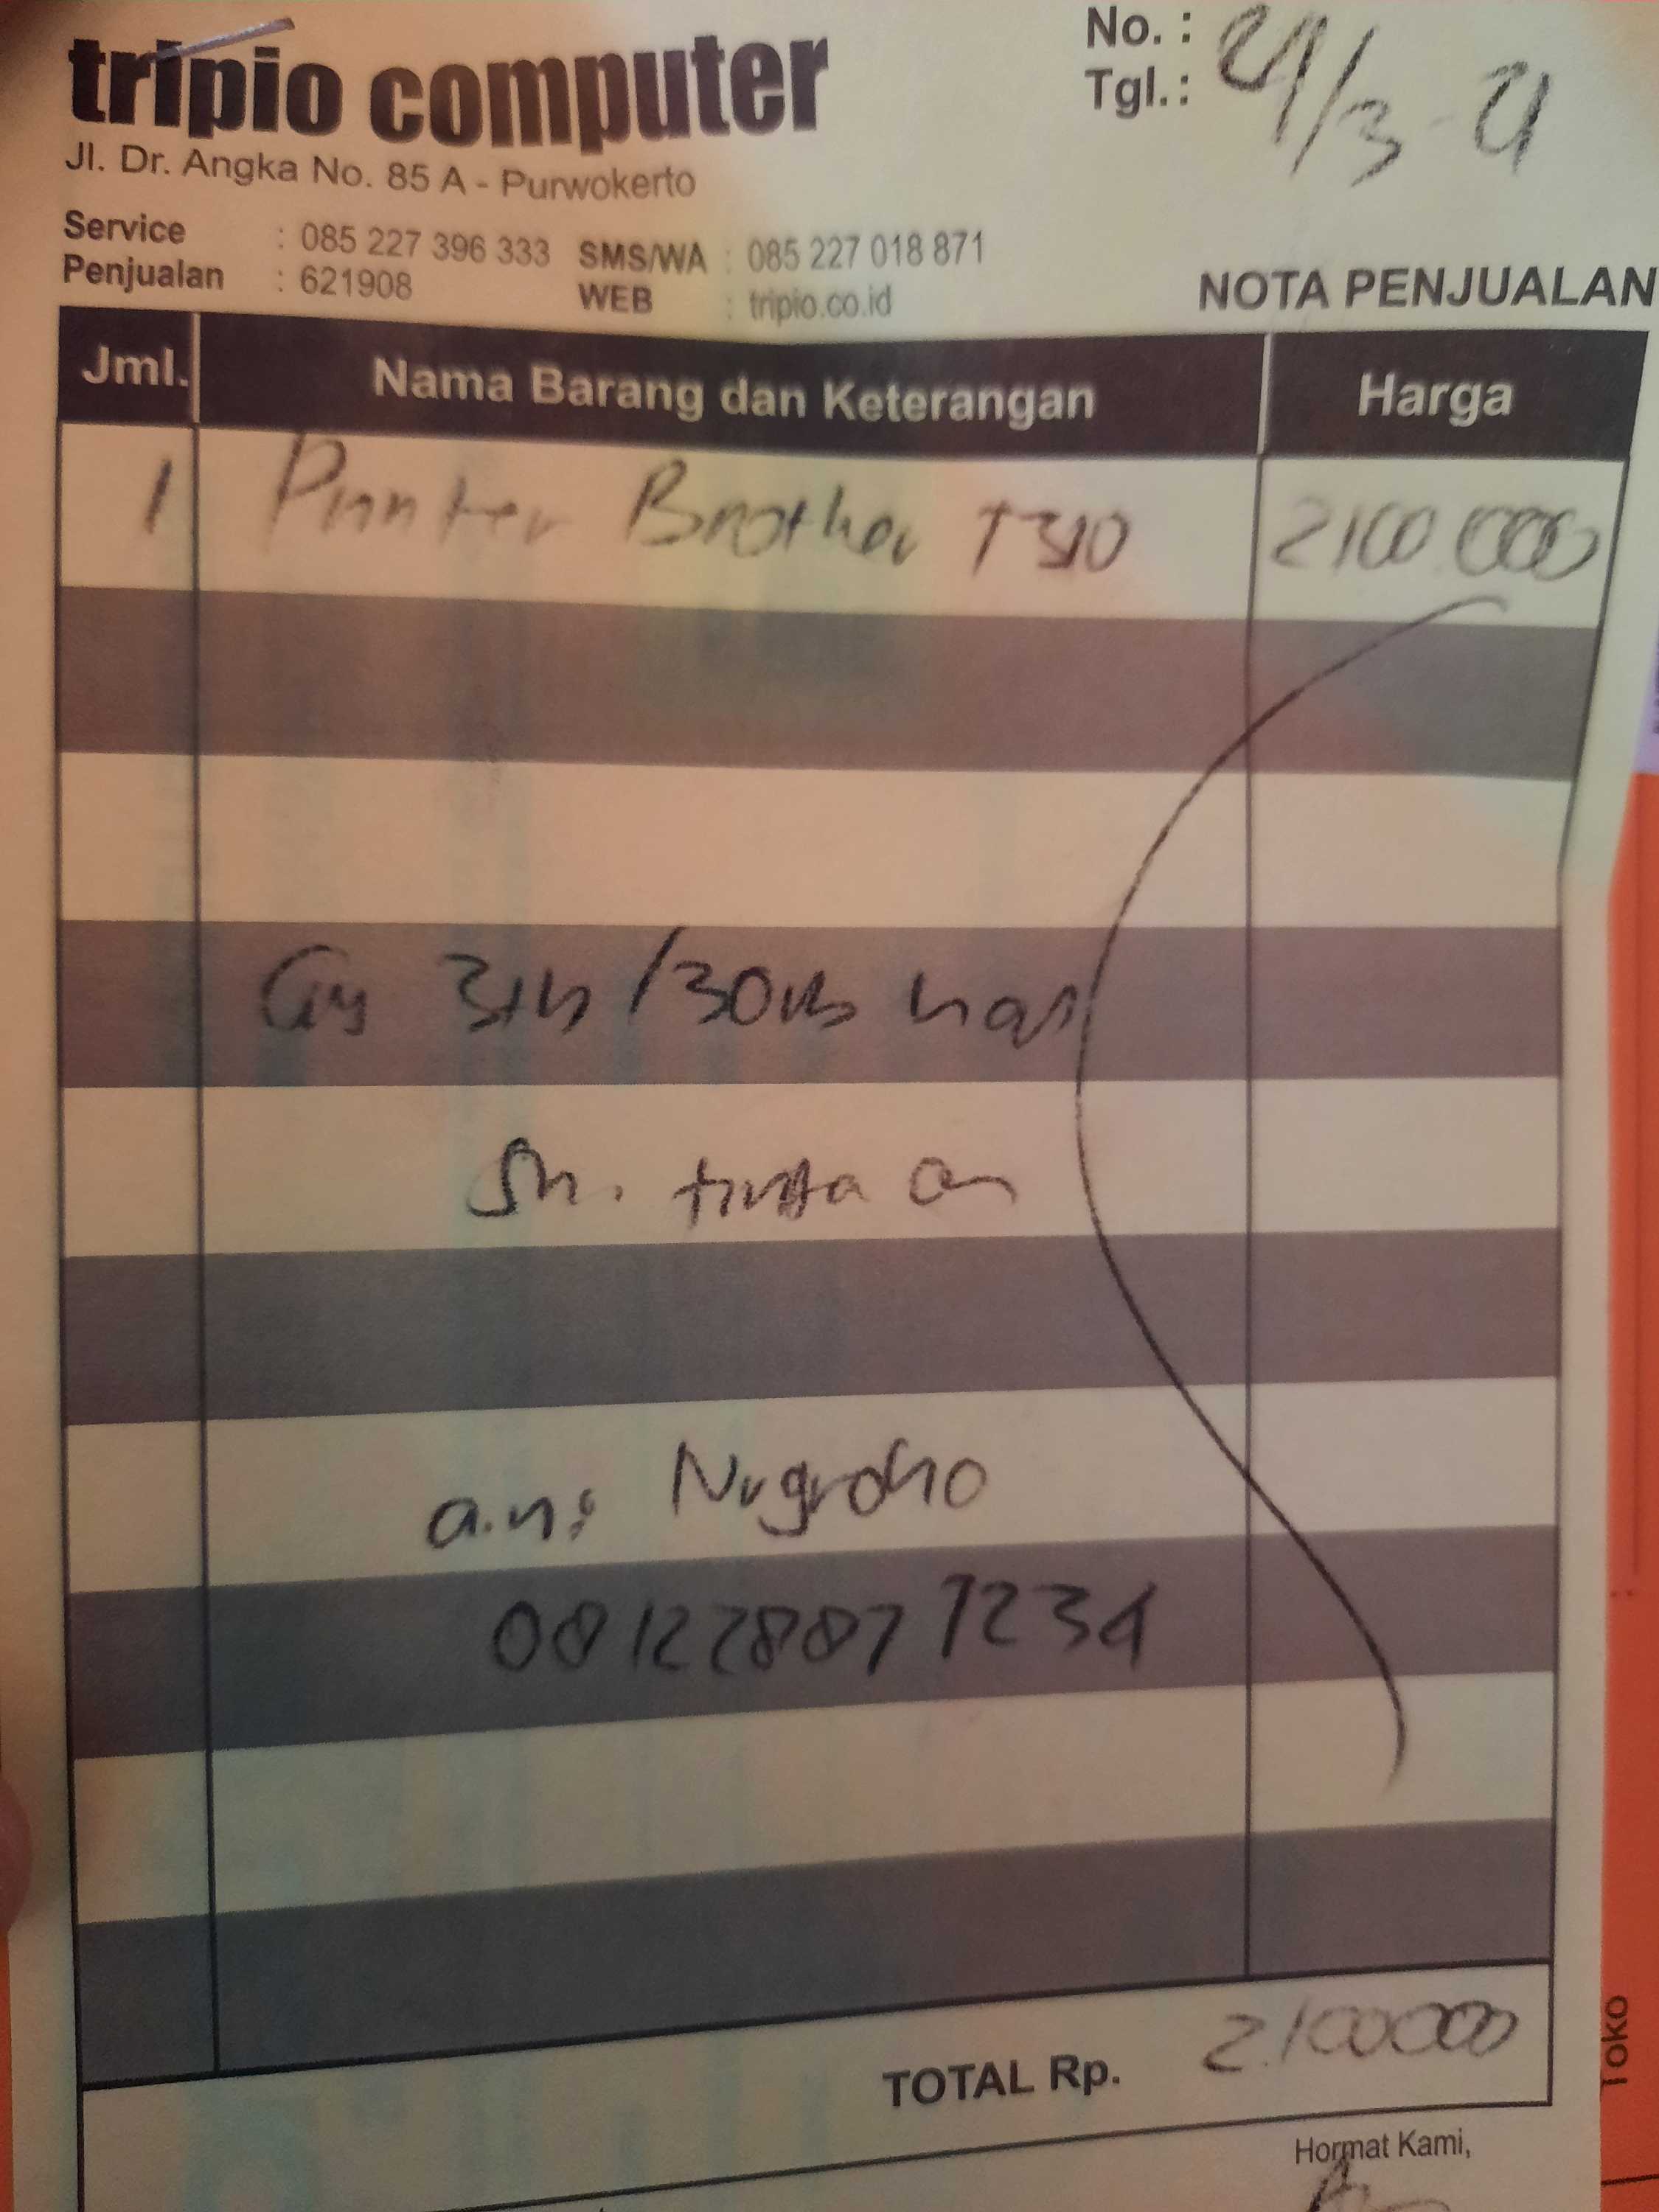 tripio computer
Jl. Dr. Angka No. 85 A - Purwokerto
No. :
Tgl. :
Service : 085 227 396 333 SMS/WA : 085 227 018 871
Penjualan : 621908 WEB : tripio.co.id
NOTA PENJUALAN
Jml. Nama Barang dan Keterangan Harga
1 Printer Brother T310 2100.000
a.n: Nugroho
081228877234
TOTAL Rp. 2.100000
Hormat Kami,
Toko